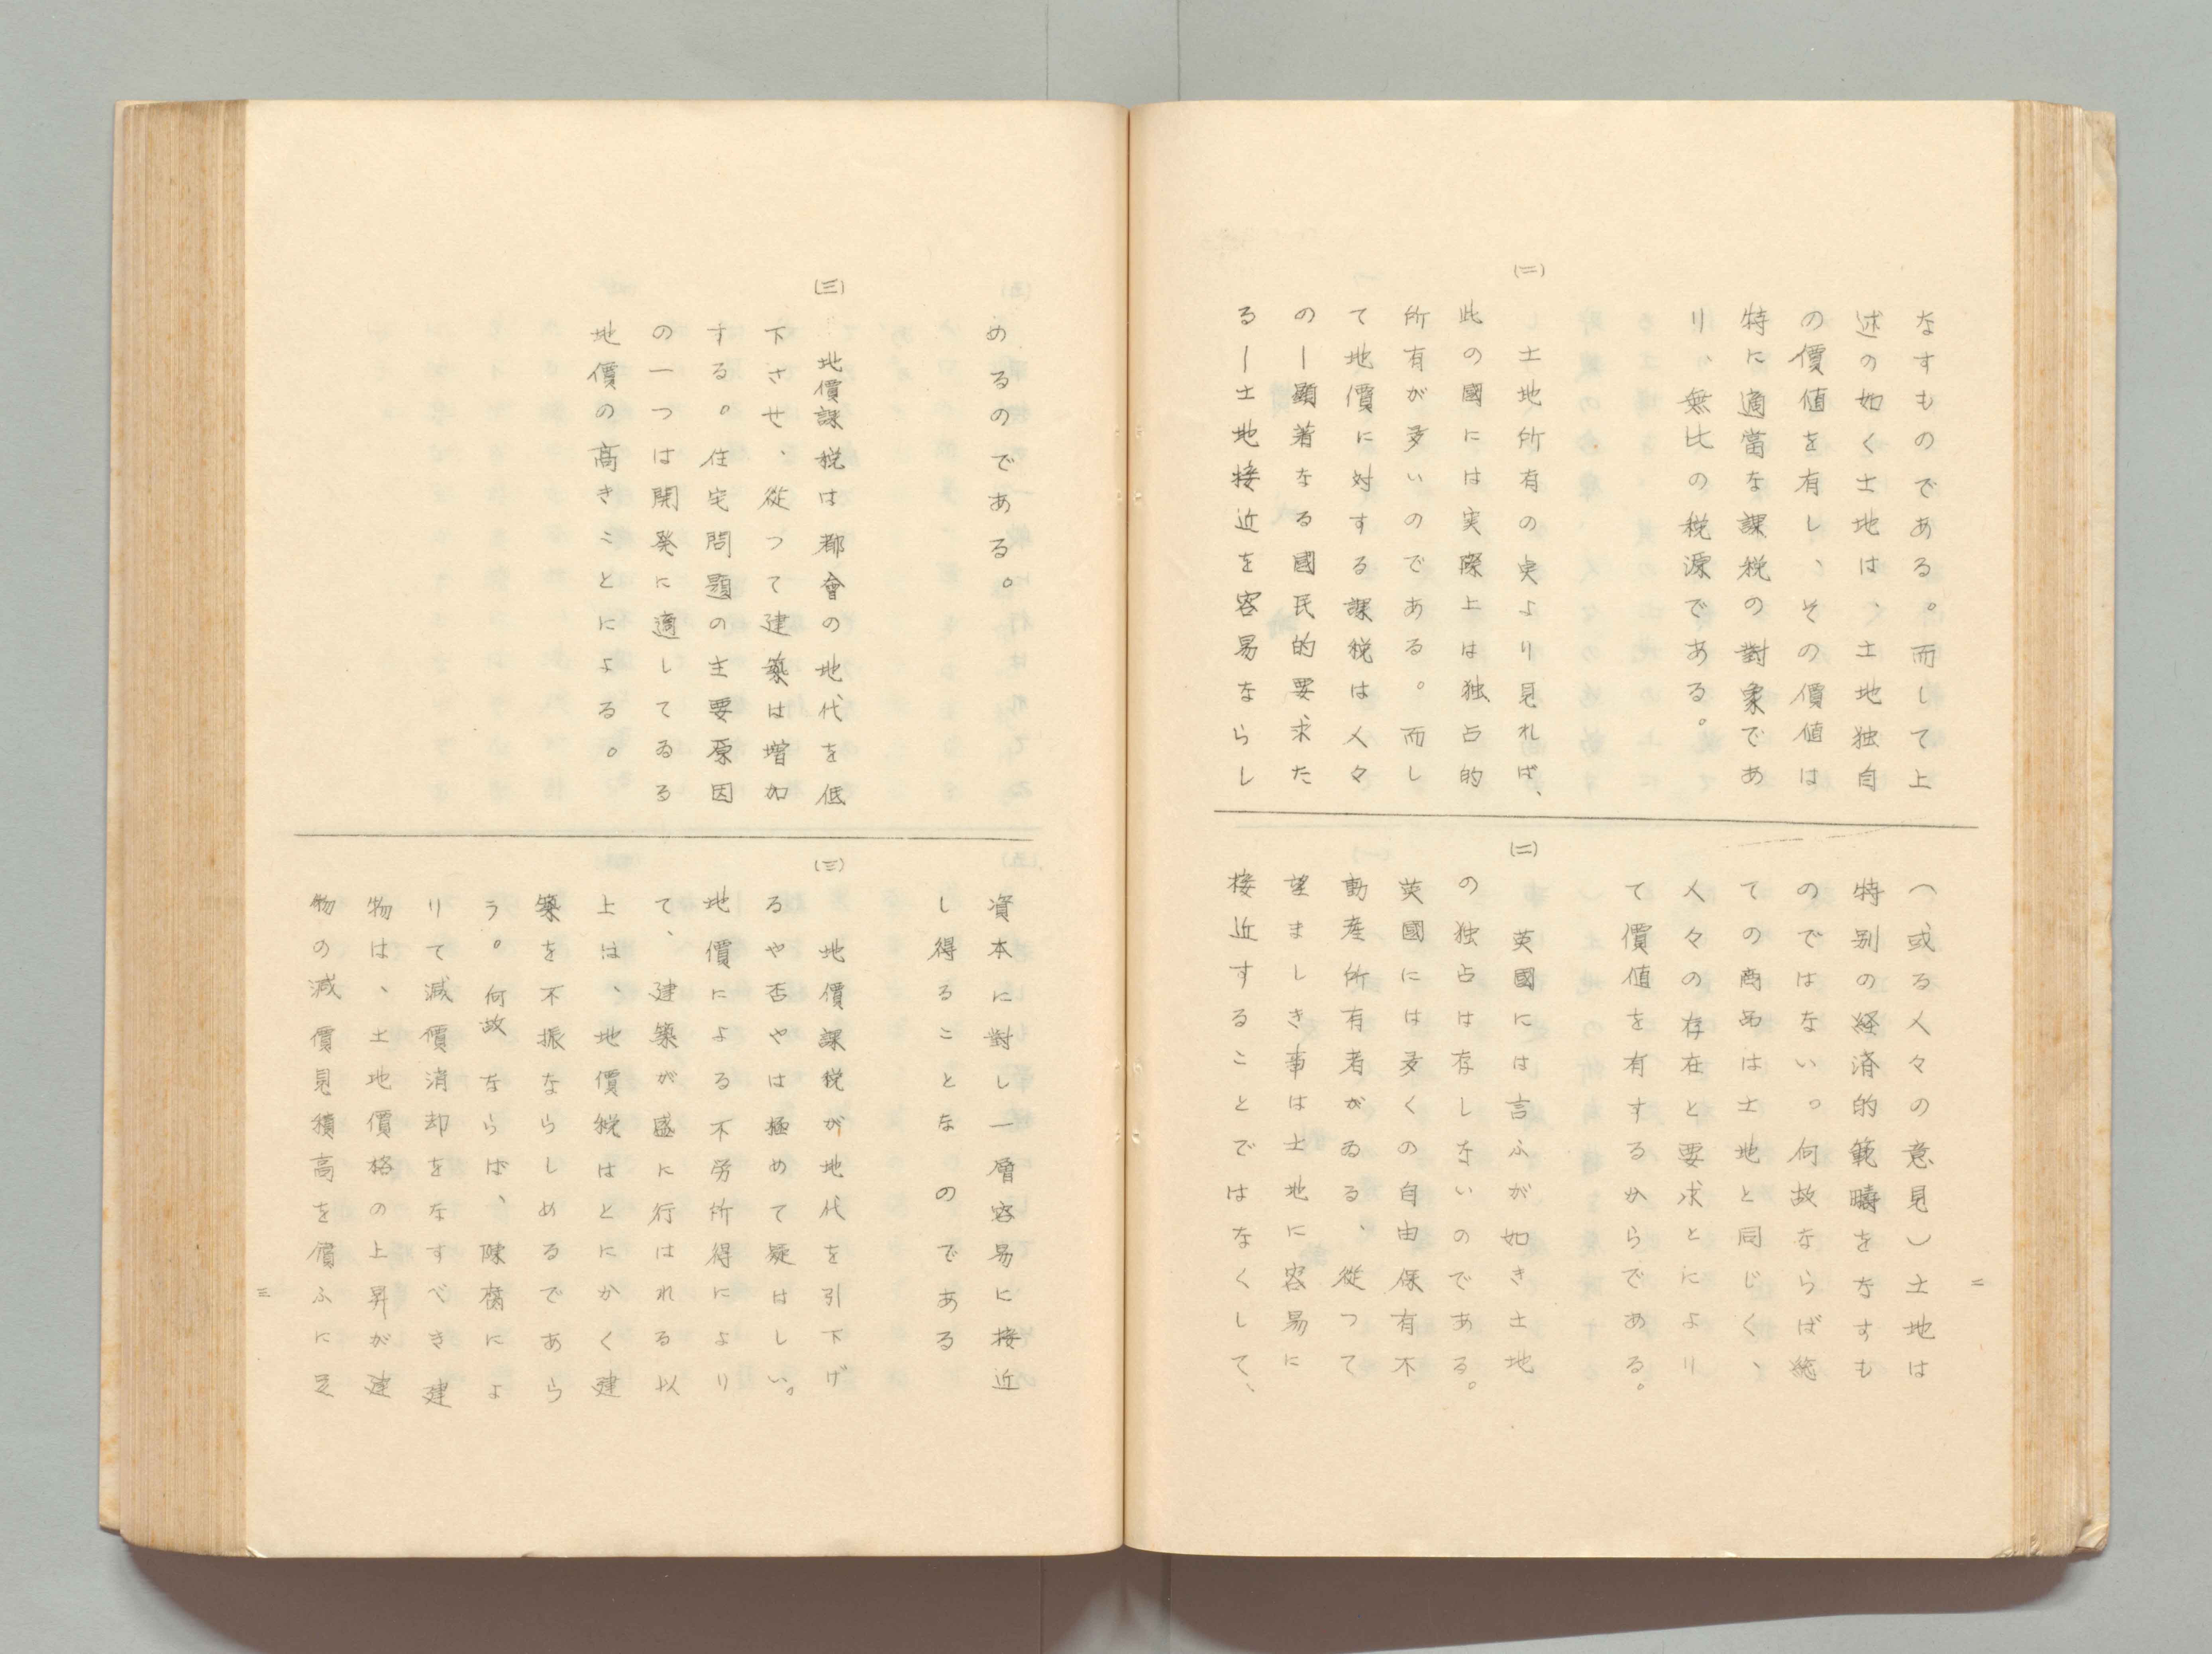 なすものである。而して上
述の如く土地は、土地独自
の價値を有し、その價値は
特に適當な課税の對象であ
り、無比の税源である。
(二)
土地所有の実より見れば、
此の國には実際上は独占的
所有が多いのである。而し
て地價に対する課税は人々
の―顕著なる國民的要求た
る―土地接近を容易ならし
(或る人々の意見)土地は
特別の経済的範疇をなすも
のではない。何故ならば総
ての商品は土地と同じく、
人々の存在と要求とにより
て價値を有するからである。
(二)
英國には言ふが如き土地
の独占は存しないのである。
英國には多くの自由保有不
動産所有者がゐる、従つて
望ましき事は土地に容易に
接近することではなくして、
二
めるのである。
(三)
地價課税は都會の地代を低
下させ、従つて建築は増加
する。住宅問題の主要原因
の一つは開発に適してゐる
地價の高きことによる。
資本に對し一層容易に接近
し得ることなのである
(三)
地價課税が地代を引下げ
るや否やは極めて疑はしい。
地價による不労所得により
て、建築が盛に行はれる以
上は、地價税はとにかく建
築を不振ならしめるであら
う。何故ならば、陳腐によ
りて減價消却をなすべき建
物は、土地價格の上昇が建
物の減價見積高を償ふに足
三